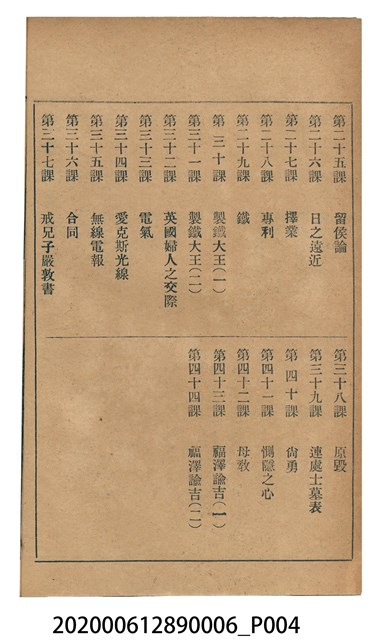 第二十五課 留侯論
第二十六課 日之遠近
第二十七課 擇業
第二十八課 專利
第二十九課 鐵
第三十課 製鐵大王(一)
第三十一課 製鐵大王(二)
第三十二課 英國婦人之交際
第三十三課 電氣
第三十四課 愛克斯光線
第三十五課 無線電報
第三十六課 合同
第三十七課 戒兄子嚴敦書
第三十八課 原毀
第三十九課 連處士墓表
第四十課 尙勇
第四十一課 惻隱之心
第四十二課 母敎
第四十三課 福澤諭吉(一)
第四十四課 福澤諭吉(二)
202000612890006_P004